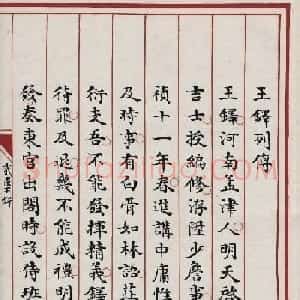 王鐸列傳
王鐸河南孟津人明天啟
吉士授編修洊陞少詹事
禎十一年春進講中庸性
及時事有白骨如林語莊
衍支吾不能發揮精義鐸
待罪及退幾不能成禮明
發奏東宮出閣時設侍班